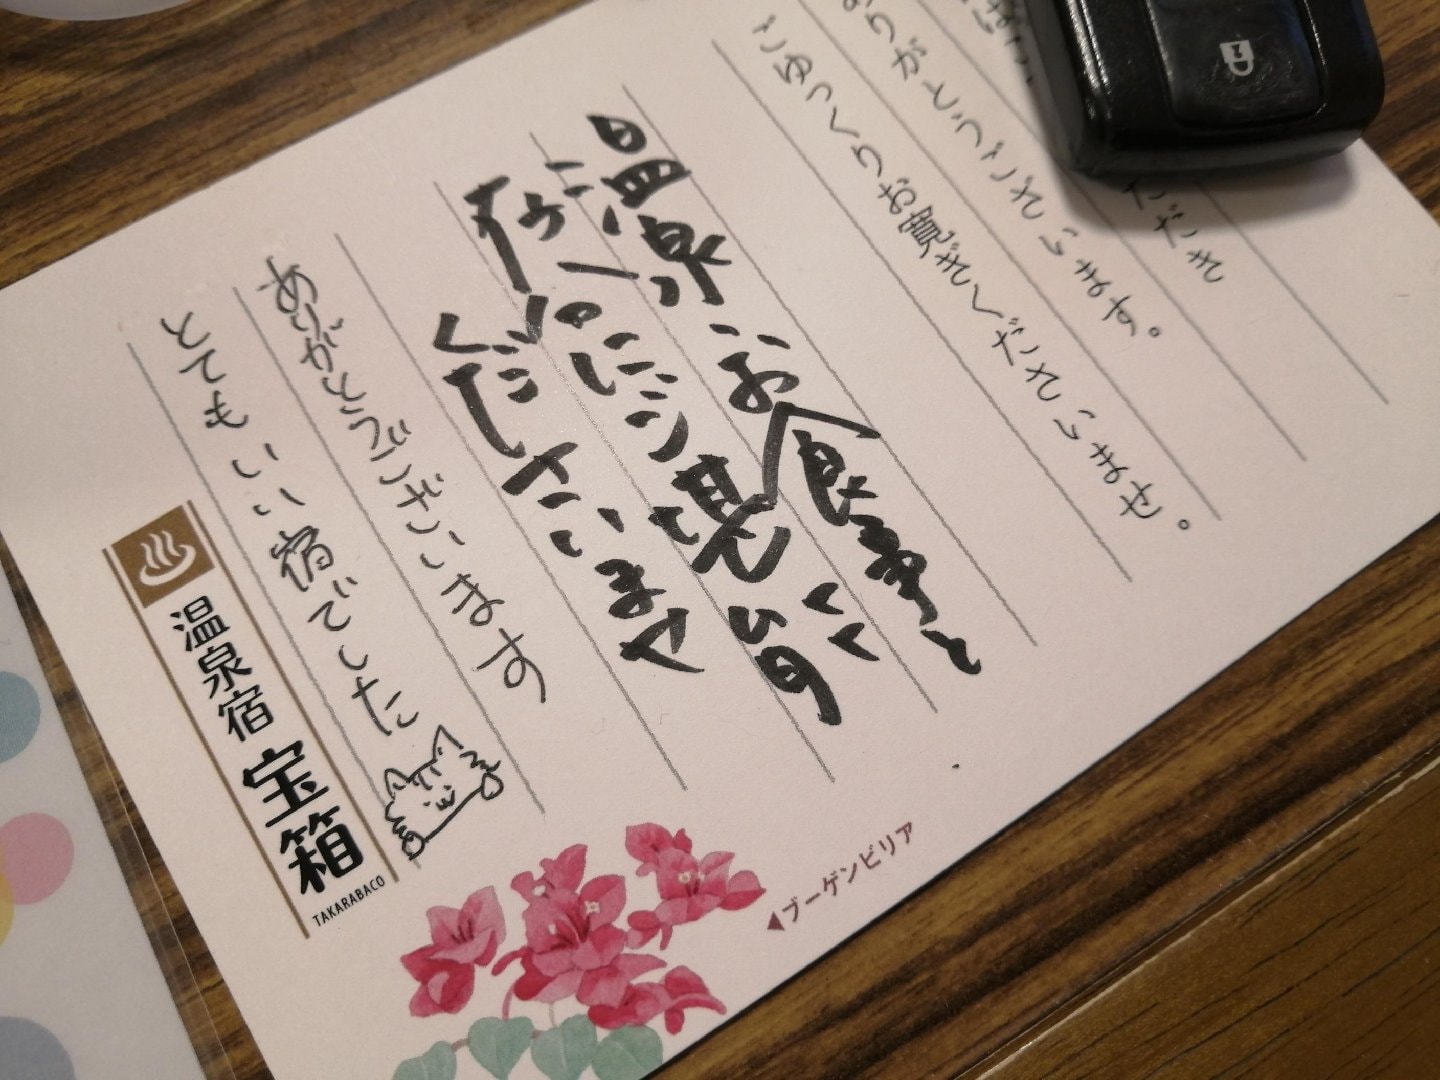 ただき
ありがとうございます。
ごゆっくりお寛ぎくださいませ。
温泉・お食事と
存分にご堪能
くださいませ
ありがとうございます
とてもいい宿でした
温泉宿 宝箱
TAKARABACO
◀ブーゲンビリア